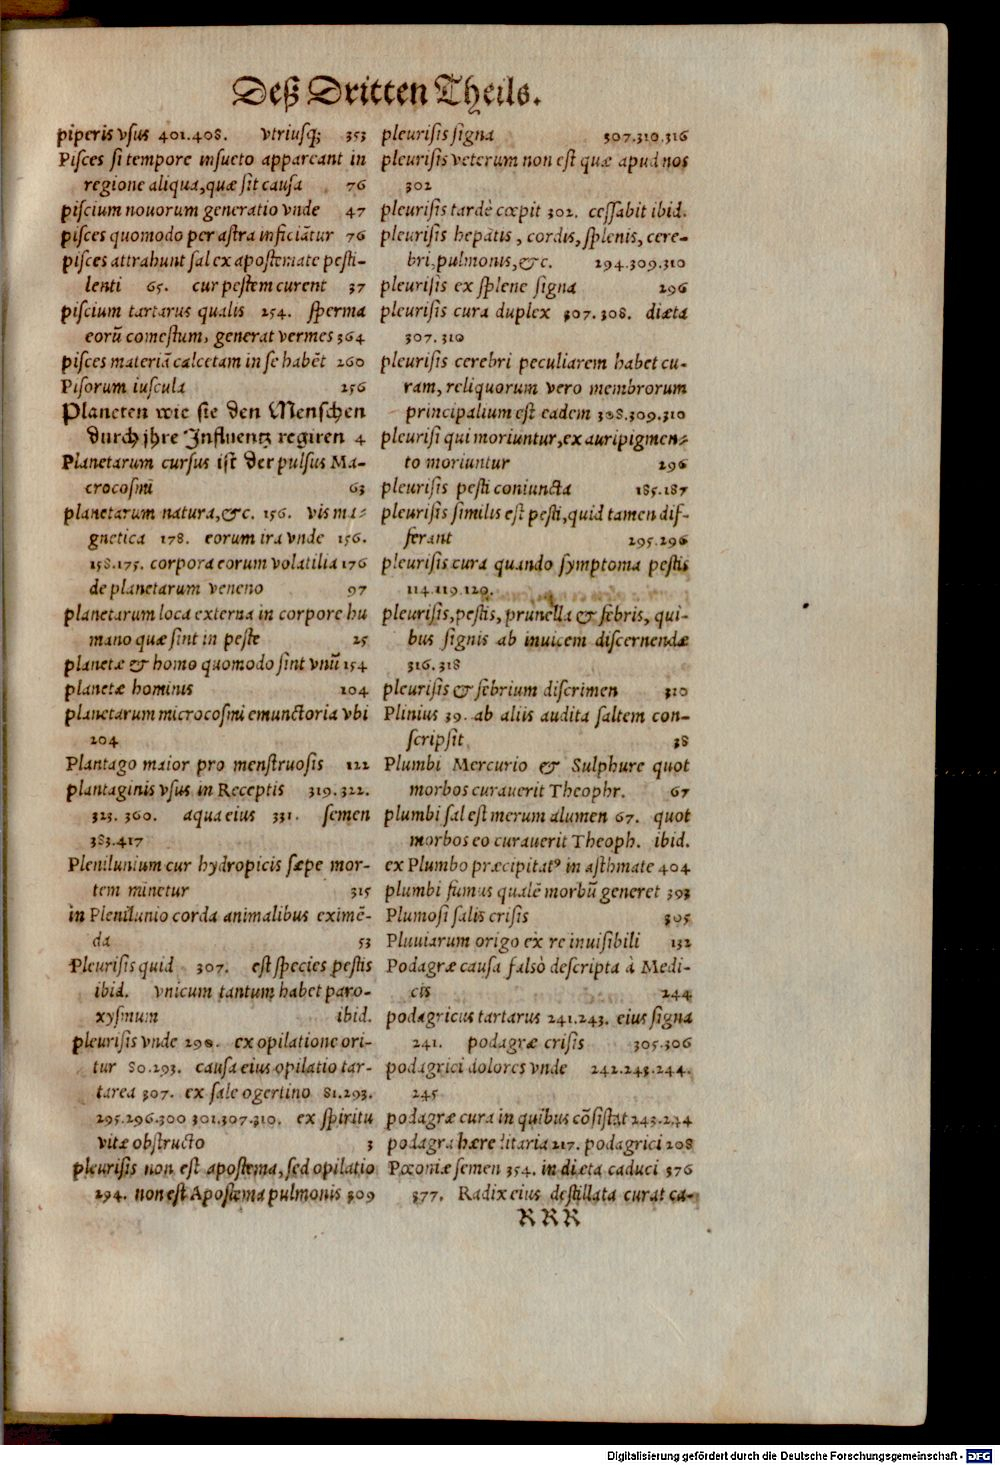 Deß Dritten Theils.
piperis vsus 401.408. vtriusq; 353
Pisces si tempore insueto appareant in
regione aliqua, quæ sit causa 76
piscium nouorum generatio vnde 47
pisces quomodo per astra inficiātur 76
pisces attrahunt sal ex apostemate pesti-
lenti 65. cur pestem curent 37
piscium tartarus qualis 254. sperma
eorū comestum, generat vermes 364
pisces materiā calcetam in se habēt 260
Pisorum iuscula 256
Planeten wie sie den Menschen
durch jhre Influentz regiren 4
Planetarum cursus ist der pulsus Ma-
crocosmi 63
planetarum natura, &c. 156. vis ma-
gnetica 178. eorum ira vnde 156.
158.175. corpora eorum volatilia 176
de planetarum veneno 97
planetarum loca externa in corpore hu
mano quæ sint in peste 25
planetæ & homo quomodo sint vnū 154
planetæ hominis 104
planetarum microcosmi emunctoria vbi
204
Plantago maior pro menstruosis 122
plantaginis vsus in Receptis 319.322.
323. 360. aqua eius 331. semen
383.417
Plenilunium cur hydropicis sæpe mor-
tem minetur 315
in Plenilunio corda animalibus eximē-
da 53
Pleurisis quid 307. est species pestis
ibid. vnicum tantum habet paro-
xysmum ibid.
pleurisis vnde 298. ex opilatione ori-
tur 80.293. causa eius opilatio tar-
tarea 307. ex sale ogertino 81.293.
295.296.300 301.307.310. ex spiritu
vitæ obstructo 3
pleurisis non est apostema, sed opilatio
294. non est Apostema pulmonis 309
pleurisis signa 307.310.316
pleurisis veterum non est quæ apud nos
302
pleurisis tardè cœpit 302. cessabit ibid.
pleurisis hepatis, cordis, splenis, cere-
bri, pulmonis, &c. 294.309.310
pleurisis ex splene signa 296
pleurisis cura duplex 307.308. diæta
307.310
pleurisis cerebri peculiarem habet cu-
ram, reliquorum vero membrorum
principalium est eadem 308.309.310
pleurisi qui moriuntur, ex auripigmen-
to moriuntur 296
pleurisis pesti coniuncta 185.187
pleurisis similis est pesti, quid tamen dif-
ferant 295.296
pleurisis cura quando symptoma pestis
114.119.120.
pleurisis, pestis, prunella & febris, qui-
bus signis ab inuicem discernendæ
316.318
pleurisis & febrium discrimen 310
Plinius 39. ab aliis audita saltem con-
scripsit 38
Plumbi Mercurio & Sulphure quot
morbos curauerit Theophr. 67
plumbi sal est merum alumen 67. quot
morbos eo curauerit Theoph. ibid.
ex Plumbo præcipitatꝰ in asthmate 404
plumbi fumus qualē morbū generet 393
Plumosi salis crisis 305
Pluuiarum origo ex re inuisibili 132
Podagræ causa falsò descripta à Medi-
cis 244
podagricus tartarus 241.243. eius signa
241. podagræ crisis 305.306
podagrici dolores vnde 242.243.244.
245
podagræ cura in quibus cōsistat 243.244
podagra hæreditaria 217. podagrici 208
Pœoniæ semen 354. in diæta caduci 376
377. Radix eius destillata curat ca-
RRR
Digitalisierung gefördert durch die Deutsche Forschungsgemeinschaft - DFG